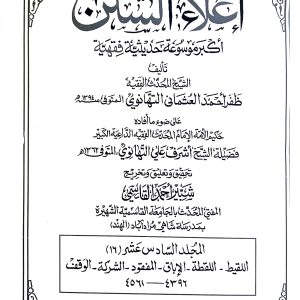 إعلاء السنن
أكبر موسوعة حديثية فقهية
تأليف
الشيخ المحدث الفقيه
ظفر أحمد العثماني التهانوي المتوفى ١٣٩٤هـ
على ضوء ما أفاده
حكيم الأمة الإمام المحدث الفقيه الداعية الكبير
فضيلة الشيخ أشرف علي التهانوي المتوفى ١٣٦٢هـ
تحقيق وتعليق وتخريج
شبير أحمد القاسمي
المفتي المحدث بالجامعة القاسمية الشهيرة
بمدرسة شاهي مرادآباد (الهند)
المجلد السادس عشر (١٦)
اللقيط - اللقطة - الإباق - المفقود - الشركة - الوقف
٤٣٩٦ - ٤٥٦١